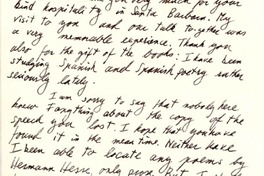 you very much for your
kind hospitality in Santa Barbara. My
visit to you and our talk together was
a very memorable experience. Thank you
also for the gift of the books: I have been
studying Spanish and Spanish poetry rather
seriously lately.
I am sorry to say that nobody here
knew anything about the copy of the
speech you lost. I hope that you have
found it in the mean time. Neither have
I been able to locate any poems by
Hermann Hesse, only prose. But I